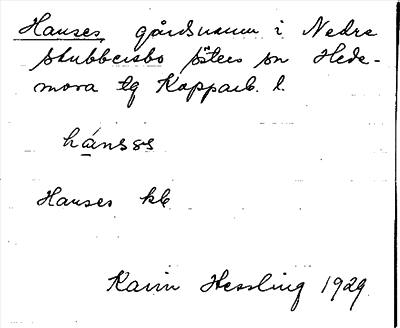 Hanses, gårdsnamn i Nedre
stubbersbo öster sn Hede-
mora tg Kopparb. l.
hánsəs
Hanses kb
Karin Hessling 1929.